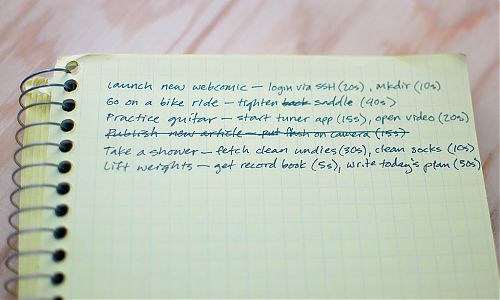 Launch new webcomic – login via SSH (20s), mkdir (10s)
Go on a bike ride – tighten back saddle (40s)
Practice guitar – start tuner app (15s), open video (20s)
Publish new article – put flash on camera (15s)
Take a shower – fetch clean undies (30s), clean socks (10s)
Lift weights – get record book (5s), write today's plan (50s)